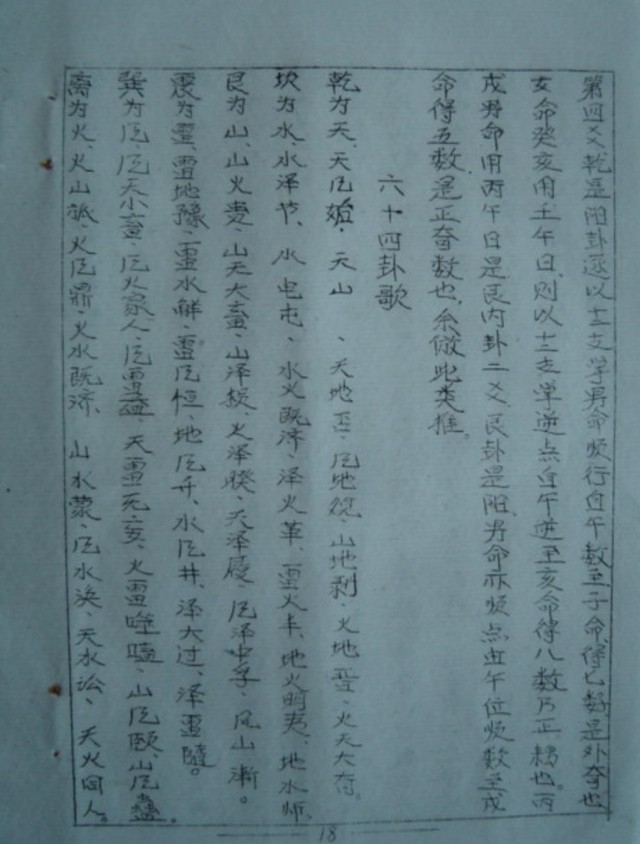 第四爻乾是阳卦逐以十二支学男命顺行自午数至子命,得七数是外夺也
女命癸亥用壬午日,则以十二支学逆点自午逆至亥命得八数乃正移也。丙
戌男命用丙午日是艮内卦二爻,艮卦是阳,男命亦顺点出午位顺数至戌
命得五数,是正奋数也,余仿此类推。
六十四卦歌
乾为天、天风姤、天山 、天地否、风地观、山地剥、火地晋、火天大有。
坎为水、水泽节、水屯屯、水火既济、泽火革、雷火丰、地火明夷、地水师。
艮为山、山火贲、山天大畜、山泽损、火泽睽、天泽履、风泽中孚、风山渐。
震为雷、雷地豫、雷水解、雷风恒、地风升、水风井、泽大过、泽雷随。
巽为风、风天小畜、风火家人、风雷益、天雷无妄、火雷噬嗑、山风颐、山风蛊。
离为火、火山旅、火风鼎、火水既济、山水蒙、风水涣、天水讼、天火同人。
18